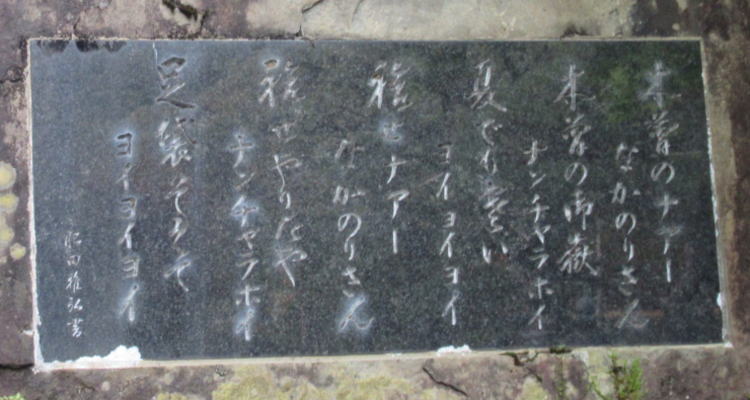 木曽のナアー
なかのりさん
木曽の御嶽
ナンチヤラホイ
夏でも寒い
ヨイヨイヨイ
袷せナアー
なかのりさん
袷せやりたや
ナンチヤラホイ
足袋そえて
ヨイヨイヨイ
田雅弘書